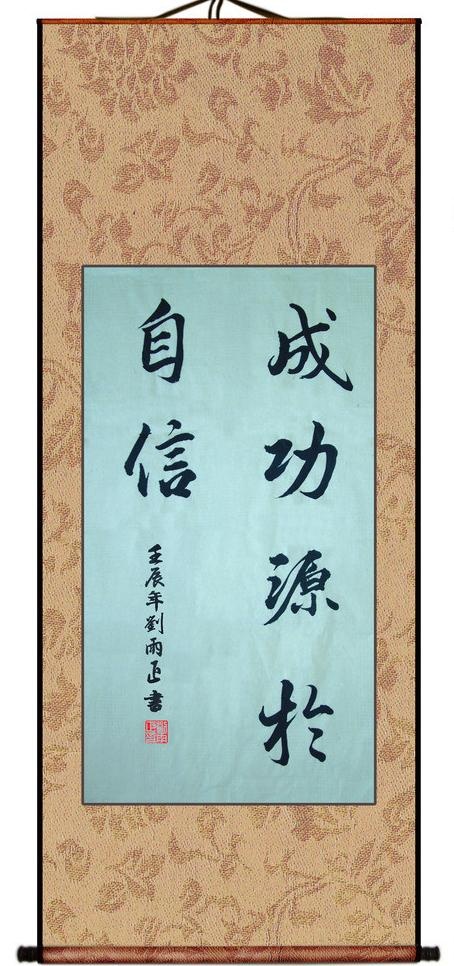 成功源於
自信
壬辰年劉雨正書